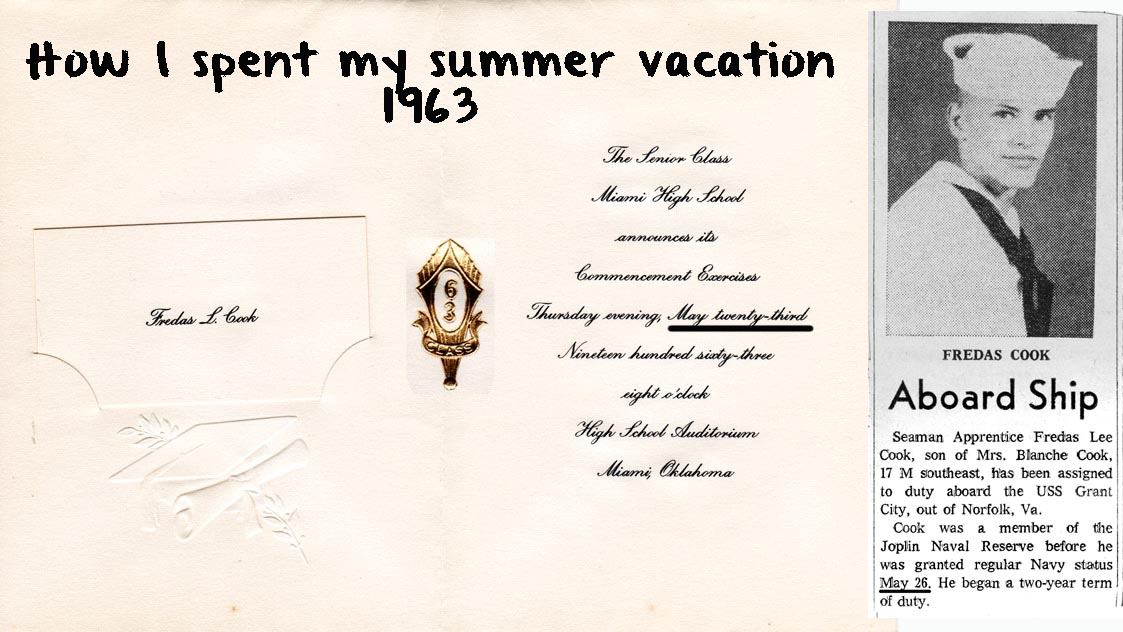 How I spent my summer vacation
1963
Fredas L. Cook
63
CLASS
The Senior Class
Miami High School
announces its
Commencement Exercises
Thursday evening, May twenty-third
Nineteen hundred sixty-three
eight o'clock
High School Auditorium
Miami, Oklahoma
FREDAS COOK
Aboard Ship
Seaman Apprentice Fredas Lee
Cook, son of Mrs. Blanche Cook,
17 M southeast, has been assigned
to duty aboard the USS Grant
City, out of Norfolk, Va.
Cook was a member of the
Joplin Naval Reserve before he
was granted regular Navy status
May 26. He began a two-year term
of duty.